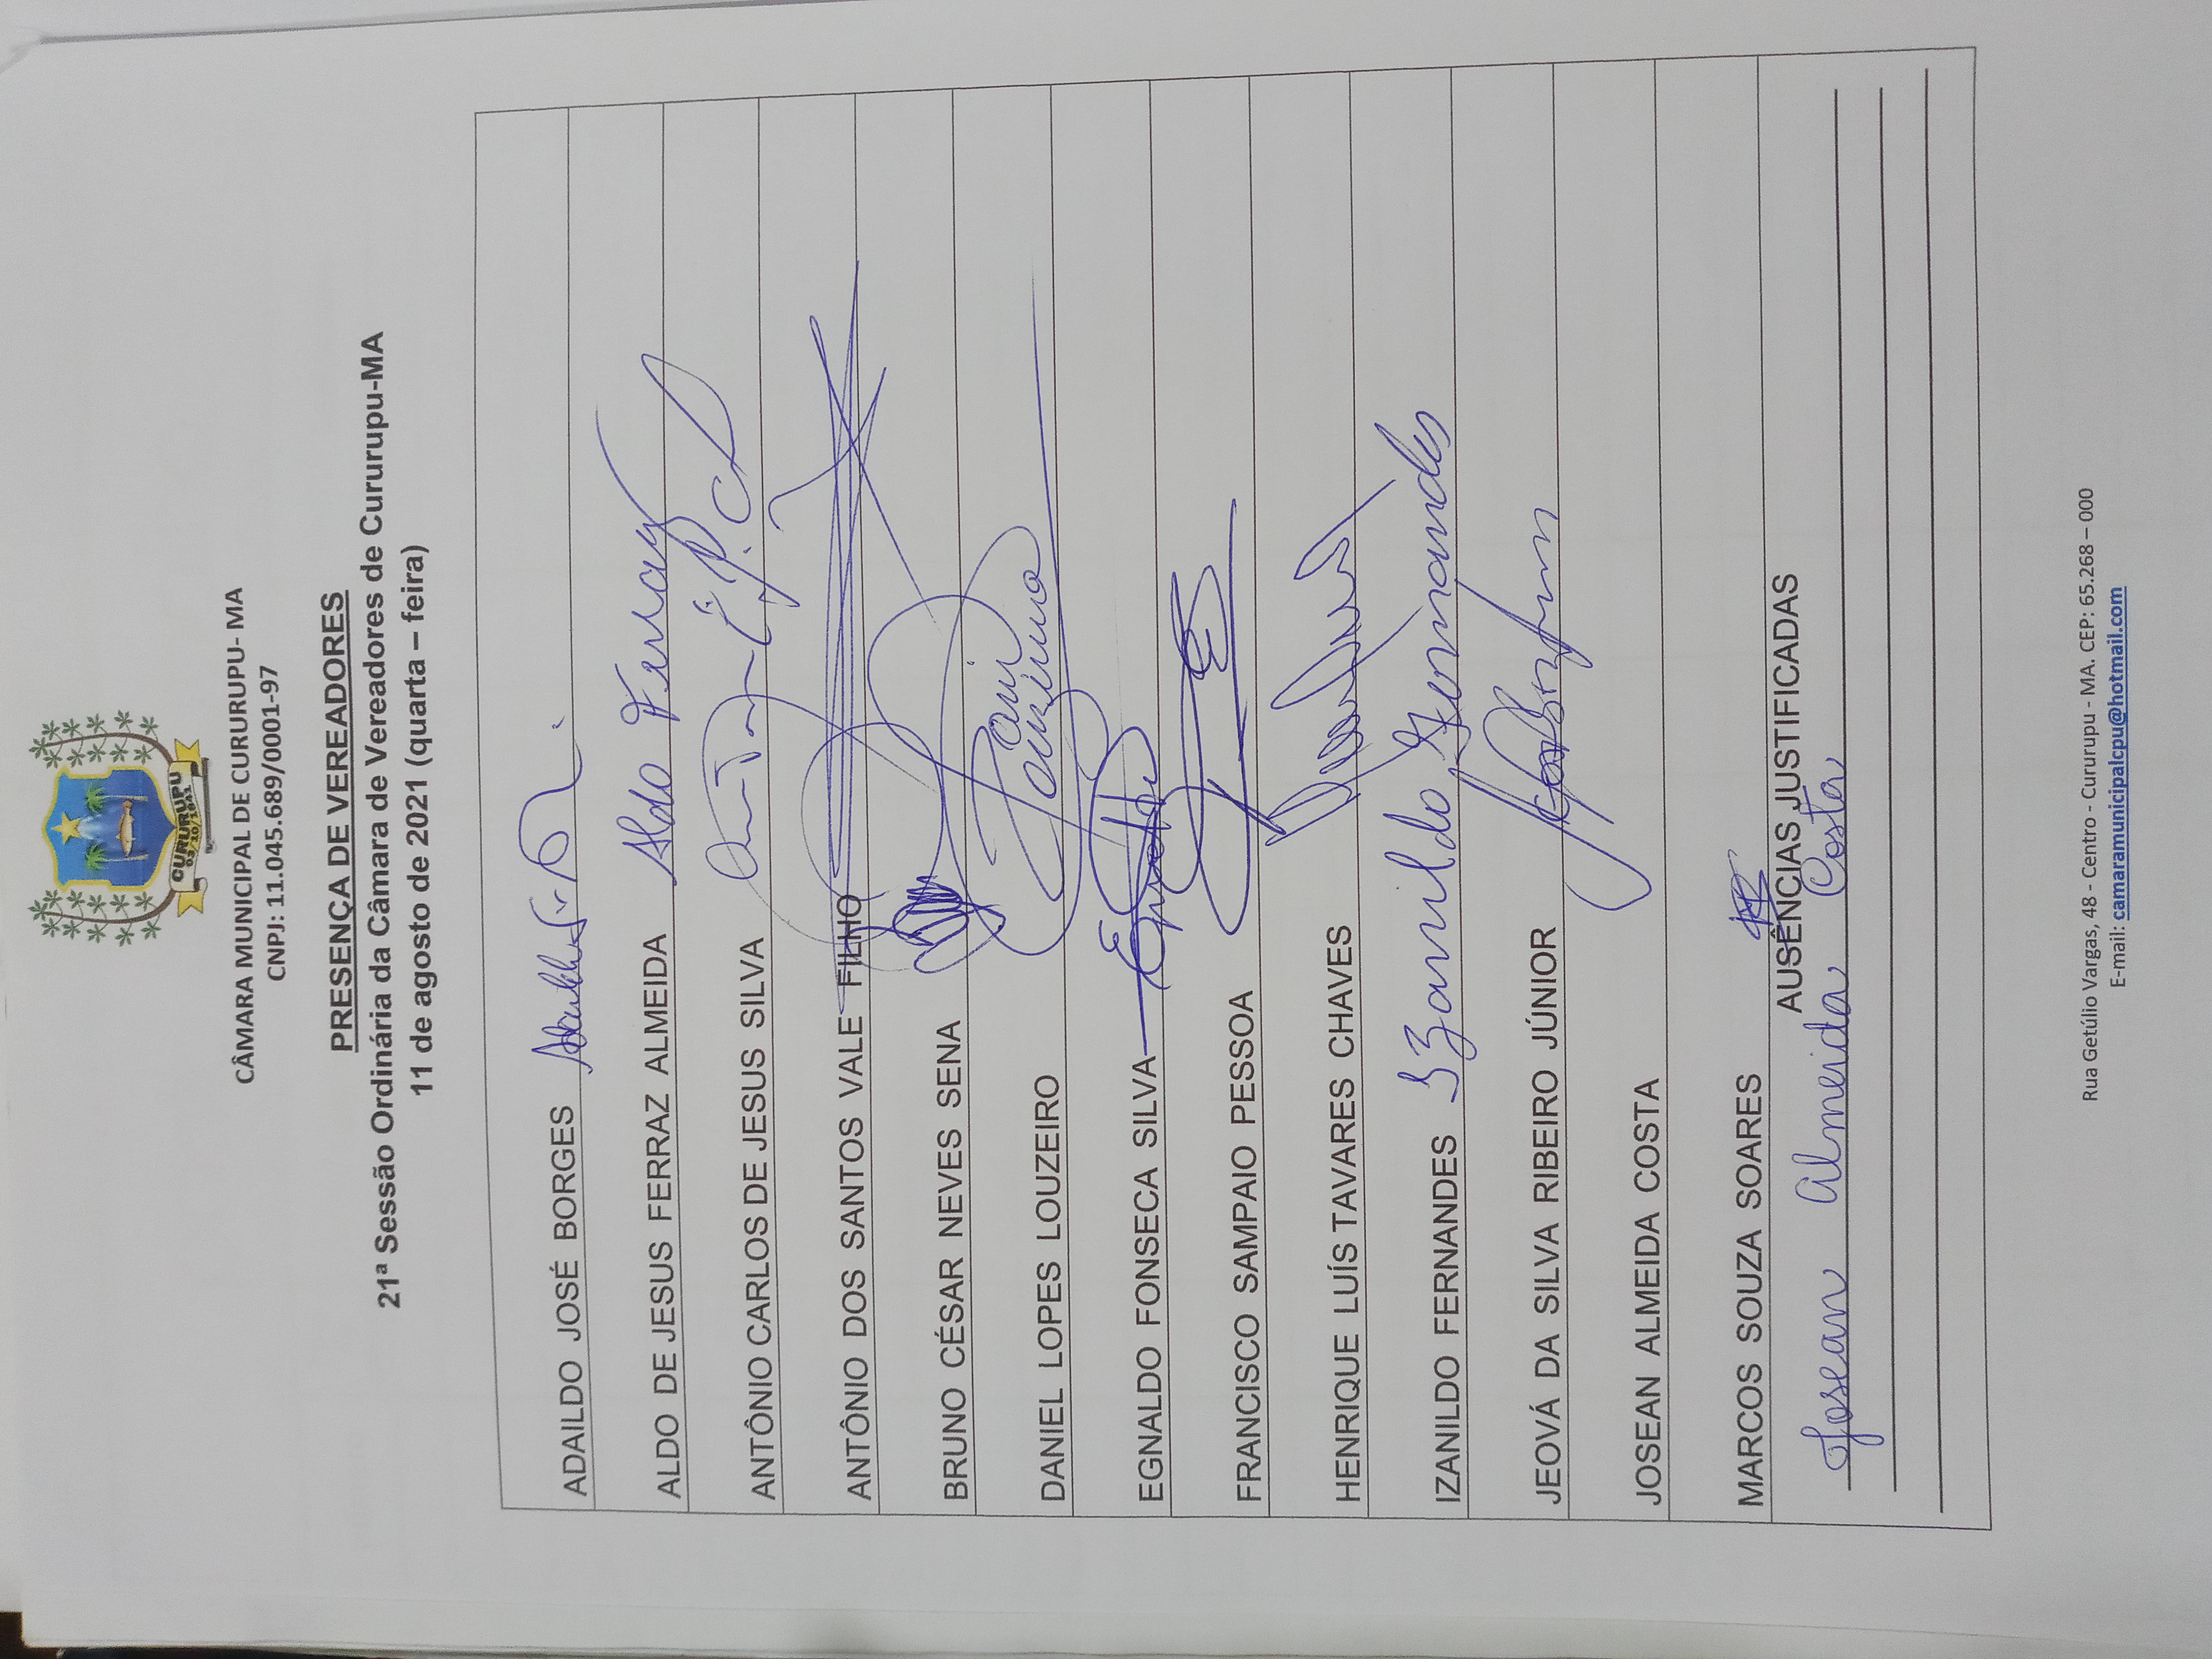 CURURUPU
03/10/1841
CÂMARA MUNICIPAL DE CURURUPU- MA
CNPJ: 11.045.689/0001-97
PRESENÇA DE VEREADORES
21ª Sessão Ordinária da Câmara de Vereadores de Cururupu-MA
11 de agosto de 2021 (quarta – feira)
ADAILDO JOSÉ BORGES
ALDO DE JESUS FERRAZ ALMEIDA Aldo Ferraz
ANTÔNIO CARLOS DE JESUS SILVA
ANTÔNIO DOS SANTOS VALE FILHO
BRUNO CÉSAR NEVES SENA
DANIEL LOPES LOUZEIRO
EGNALDO FONSECA SILVA
FRANCISCO SAMPAIO PESSOA
HENRIQUE LUÍS TAVARES CHAVES
IZANILDO FERNANDES Izanildo Fernandes
JEOVÁ DA SILVA RIBEIRO JÚNIOR
JOSEAN ALMEIDA COSTA
MARCOS SOUZA SOARES
AUSÊNCIAS JUSTIFICADAS
Josean Almeida Costa
Rua Getúlio Vargas, 48 - Centro - Cururupu - MA. CEP: 65.268 – 000
E-mail: camaramunicipalcpu@hotmail.com